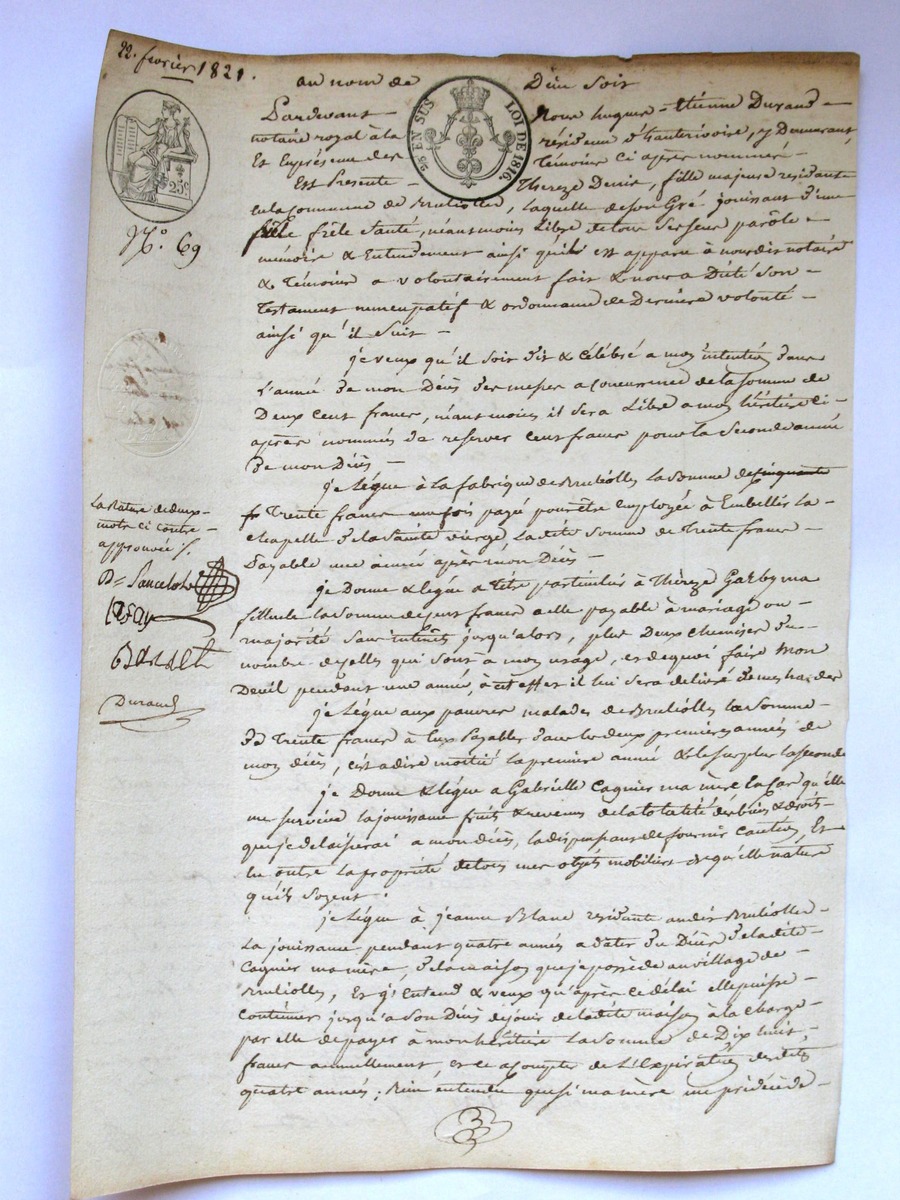 22. fevrier 1821.
au nom de Dieu Soit
Pardevant Nous hugues Etienne Durand
notaire royal à la résidence d'hauterivoire, y Demeurant
Et En présence des Témoins ci après nommés
25 EN SUS LOI DE 1816.
25c
N.° 69
Est Presente Thereze Denis, fille majeure residante
en la Commune de Brulliolles, laquelle de Son Gré jouissant d'une
frêle Santé, néantmoins Libre de tous Ses Sens parôle
mémoire & Entendement ainsi qu'il est apparu à nous dit notaire
& Témoins a volontairement fait & nous a Dicté Son
Testament nuncupatif & ordonnance de Derniere volonté
ainsi qu'il Suit
je veux qu'il Soit dit & célébré a mon intention dans
L'année de mon Décès des messes a concurrence de la Somme de
Deux cent francs, néantmoins il Sera Libre a mon héritière ci
après nommée de reserver cent francs pour la Seconde année
De mon Décès
je Légue à la fabrique de Brulliolles La Somme de cinquante
fr Trente francs une fois payé pour être employée à Embellir La
chapelle de la Sainte vierge, La dite Somme de Trente francs
Payable une année après mon Décès
La Rature de deux
mots ci contre
approuvée
Durand
je Donne & légue a titre particulier à Thèreze Garby ma
filleule la Somme de cent francs a elle payable à mariage ou
majorité Sans intérêts jusqu'alors, plus Deux chemises du
nombre de celles qui Sont à mon usage, et de quoi faire mon
Deuil pendant une année, à cet effet il lui sera délivré de mes hardes
je Légue aux pauvres malades de Brulliolles La Somme
de Trente francs à Eux Payables dans les deux premieres années de
mon décès, c'est a dire moitié la premiere année & le Surplus la seconde
je Donne & légue a Gabrielle Cagnier ma mère, la cas qu'elle
me Survive la jouissance fruits & revenus de la totalité des biens & droits
que je délaisserai a mon décès, la dispensant de fournir caution, Et
En outre La propriété de tous mes objets mobiliers de qu'elle nature
qu'ils Soyent.
je Légue à jeanne Blanc residante au dit Brulliolles
La jouissance pendant quatre années a dater du Décès de la dite
Cagnier ma mère, de la maison que je possède au village de
Brulliolles, Et j'entend & veux qu'après ce délai elle puisse
Continuer jusqu'a Son Décès de jouir de la dite maison à la charge
par elle de payer à mon héritière La Somme de Dix huit
francs annuellement, et ce a compter de L'Expiration des dites
quatre années; Bien entendu que si ma mère me prédécède